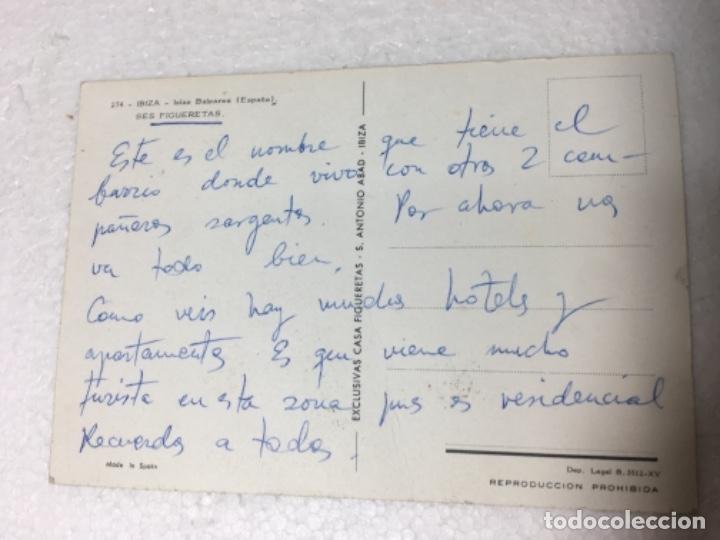 274 - IBIZA - Islas Baleares (España).
SES FIGUERETAS.
Este es el nombre que tiene el
barrio donde vivo con otros 2 com-
pañeros sargentos. Por ahora nos
va todo bien.
Como veis hay muchos hoteles y
apartamentos Es que viene mucho
turista en esta zona pues es residencial
Recuerdos a todos.
EXCLUSIVAS CASA FIGUERETAS - S. ANTONIO ABAD - IBIZA
Made in Spain
Dep. Legal B. 3512-XV
REPRODUCCION PROHIBIDA
todocoleccion.net